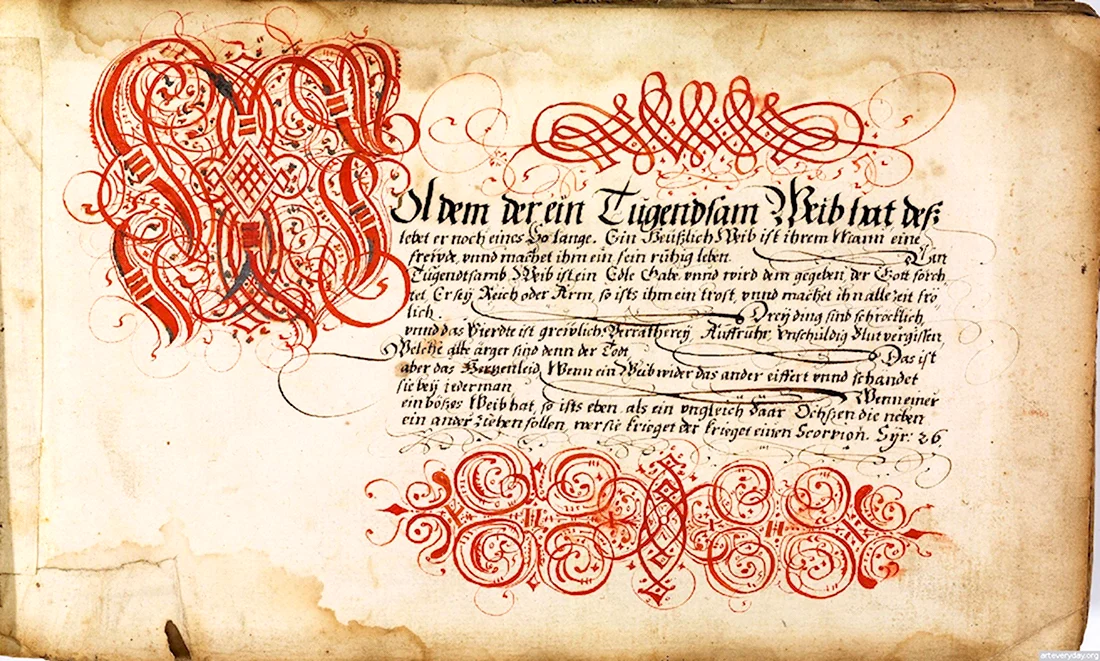 Wol dem der ein Tugendsam Weib hat deß
lebet er noch eines So lange. Ein Heußlich Weib ist ihrem Mann eine
freude, vnnd machet ihm ein fein rühig leben. Ein
Tugendtsamb Weib ist ein Edle Gabe vnnd wird dem gegeben der Gott förch
tet, Er seÿ Reich oder Arm, so ists ihm ein trost, vnnd machet ihn alle Zeit frö
lich. Dreÿ ding sind schröcklich
vnnd das Vierdte ist grewlich Verrätthereÿ, Auffruhr, vnschüldig Blut vergissen
Welche alle ärger sind denn der Todt. Das ist
aber das Hertzenleid, Wenn ein Weib wider das ander eiffert vnnd schandet
sie beÿ jederman Wenn einer
ein bößes Weib hat, so ists eben als ein vngleich Paar Ochßen die neben
ein ander ziehen sollen, wer sie krieget der krieget einen Scorpion. Sÿr: 26.
arteveryday.org